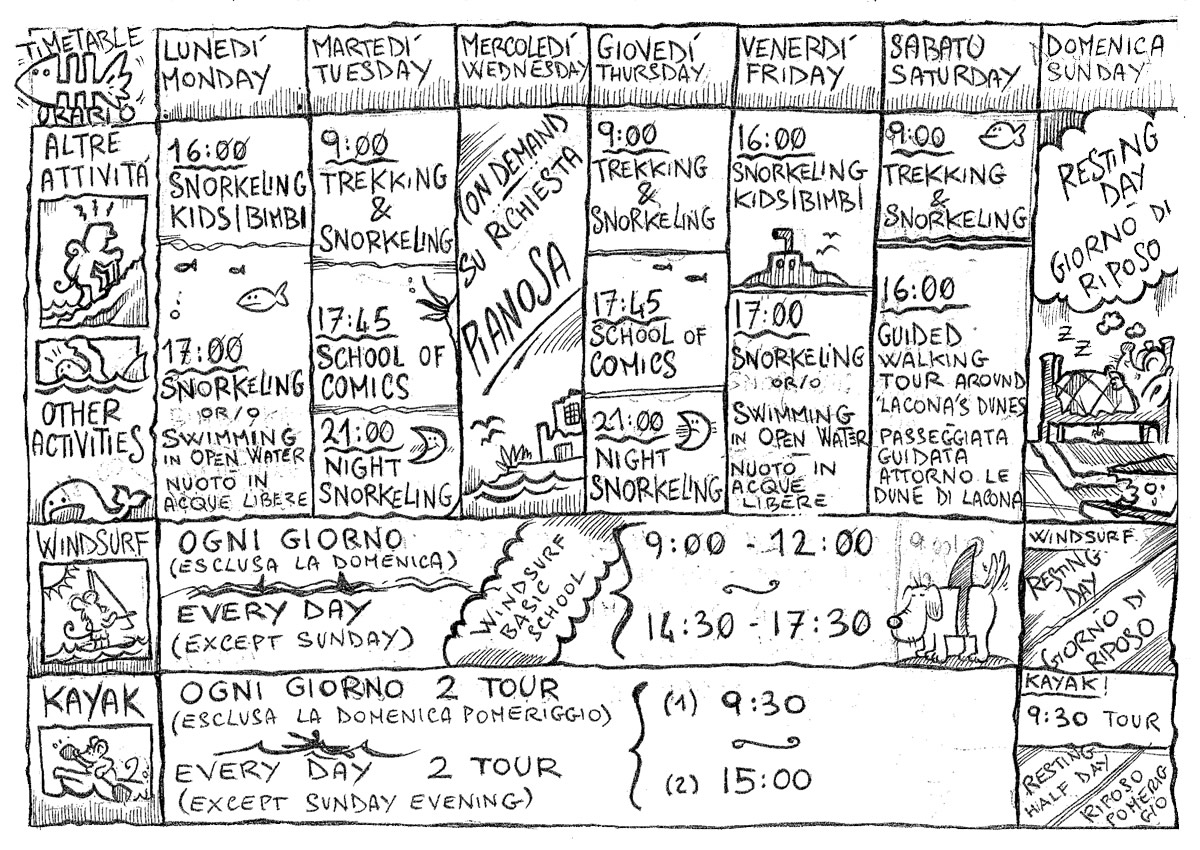 TIMETABLE
ORARIO
LUNEDÍ
MONDAY
MARTEDÍ
TUESDAY
MERCOLEDÍ
WEDNESDAY
GIOVEDÍ
THURSDAY
VENERDÍ
FRIDAY
SABATO
SATURDAY
DOMENICA
SUNDAY
ALTRE
ATTIVITÁ
OTHER
ACTIVITIES
16:00
SNORKELING
KIDS/BIMBI
17:00
SNORKELING
OR/O
SWIMMING
IN OPEN WATER
NUOTO IN
ACQUE LIBERE
9:00
TREKKING
&
SNORKELING
17:45
SCHOOL OF
COMICS
21:00
NIGHT
SNORKELING
(ON DEMAND
SU RICHIESTA
PIANOSA
9:00
TREKKING
&
SNORKELING
17:45
SCHOOL OF
COMICS
21:00
NIGHT
SNORKELING
16:00
SNORKELING
KIDS/BIMBI
17:00
SNORKELING
OR/O
SWIMMING
IN OPEN WATER
NUOTO IN
ACQUE
LIBERE
9:00
TREKKING
&
SNORKELING
16:00
GUIDED
WALKING
TOUR AROUND
'LACONA'S DUNES
PASSEGGIATA
GUIDATA
ATTORNO LE
DUNE DI LACONA
RESTING
DAY
GIORNO DI
RIPOSO
Z
Z
WINDSURF
OGNI GIORNO
(ESCLUSA LA DOMENICA)
EVERY DAY
(EXCEPT SUNDAY)
WINDSURF
BASIC
SCHOOL
9:00 - 12:00
14:30 - 17:30
WINDSURF
RESTING
DAY
GIORNO DI
RIPOSO
KAYAK
2
OGNI GIORNO 2 TOUR
(ESCLUSA LA DOMENICA POMERIGGIO)
EVERY DAY 2 TOUR
(EXCEPT SUNDAY EVENING)
(1) 9:30
(2) 15:00
KAYAK!
9:30 TOUR
RESTING
HALF DAY
RIPOSO
POMERIG
GIO